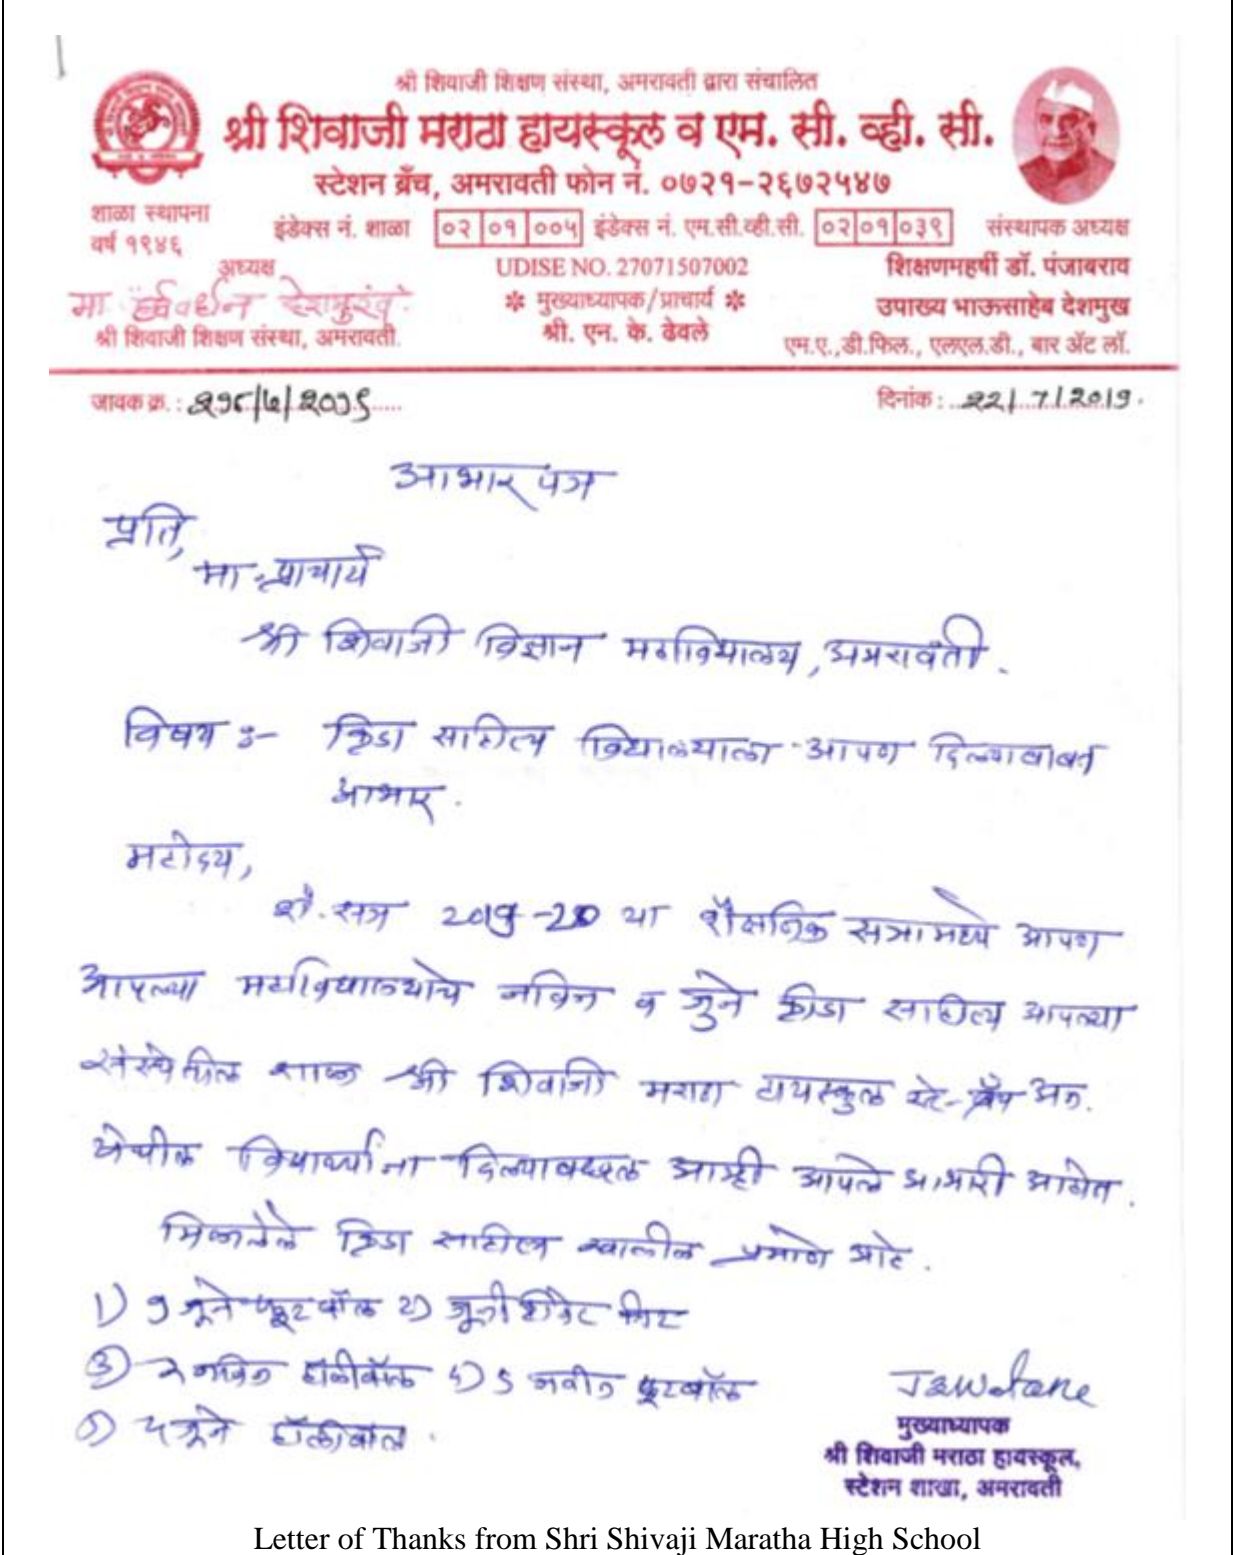 श्री शिवाजी शिक्षण संस्था, अमरावती द्वारा संचालित
श्री शिवाजी मराठा हायस्कूल व एम. सी. व्ही. सी.
स्टेशन ब्रँच, अमरावती फोन नं. ०७२१-२६७२५४७
शाळा स्थापना
वर्ष १९४६
इंडेक्स नं. शाळा ०२ ०१ ००५ इंडेक्स नं. एम.सी.व्ही.सी. ०२ ०१ ०३९
संस्थापक अध्यक्ष
अध्यक्ष
मा. हर्षवर्धन देशमुख
श्री शिवाजी शिक्षण संस्था, अमरावती.
UDISE NO. 27071507002
❉ मुख्याध्यापक/प्राचार्य ❉
श्री. एन. के. ढेवले
शिक्षणमहर्षी डॉ. पंजाबराव
उपाख्य भाऊसाहेब देशमुख
एम.ए.,डी.फिल., एलएल.डी., बार अ‍ॅट लॉ.
जावक क्र. : २१८/७/२०१९
दिनांक : 22/7/2019.
आभार पत्र
प्रति,
मा. प्राचार्य
श्री शिवाजी विज्ञान महाविद्यालय, अमरावती.
विषय :- क्रिडा साहित्य विद्यालयाला आपण दिल्याबाबत
आभार.
महोदय,
शै. सत्र 2019-20 या शैक्षनिक सत्रामध्ये आपण
आपल्या महाविद्यालयाचे नविन व जुने क्रीडा साहित्य आपल्या
संस्थेतील शाळा श्री शिवाजी मराठा हायस्कुल स्टे-ब्रँच अम.
येथील विद्यार्थ्यांना दिल्याबद्दल आम्ही आपले आभारी आहोत.
मिळालेले क्रिडा साहित्य खालील प्रमाणे आहे.
1) 9 जूने फूटबॉल 2) जूनी क्रीकेट किट
3) २ नविन हॉलीबॉल ४) 5 नवीन फूटबॉल
५) ५ जूने हॉलीबॉल.
मुख्याध्यापक
श्री शिवाजी मराठा हायस्कूल,
स्टेशन शाखा, अमरावती
Letter of Thanks from Shri Shivaji Maratha High School